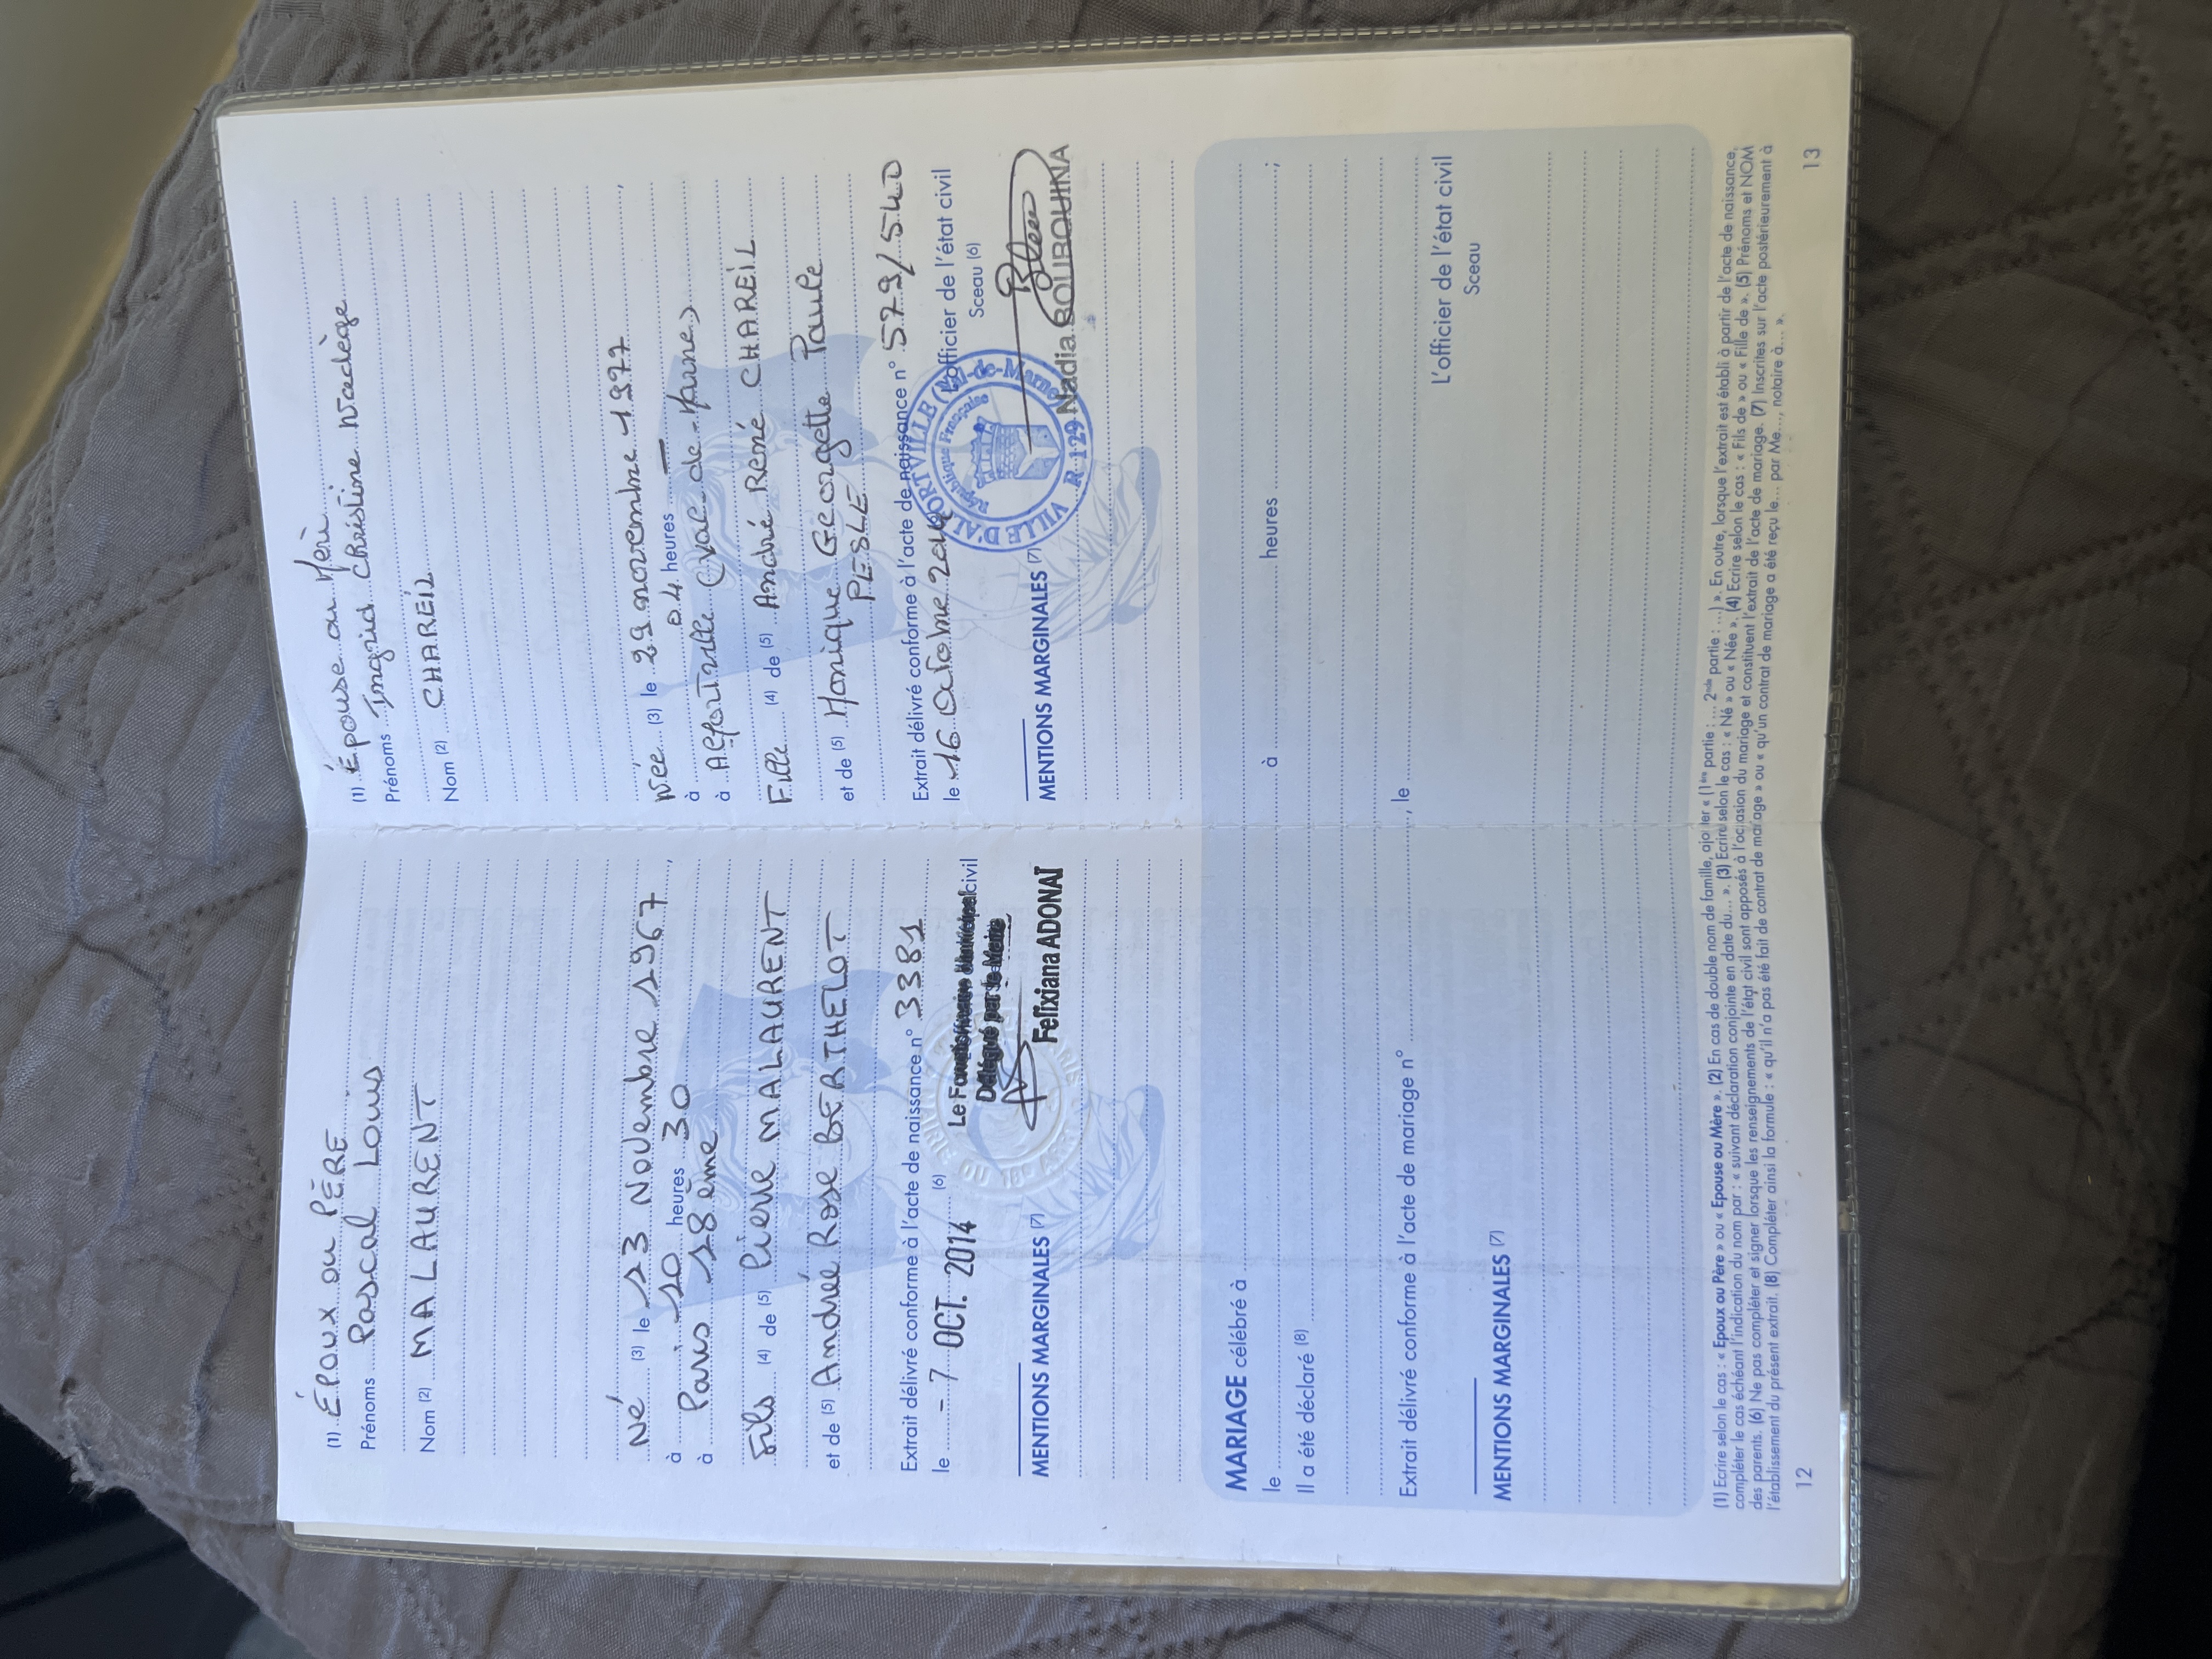 (1) ÉPOUX OU PÈRE
Prénoms Pascal Louis
Nom (2) MALAURENT
Né (3) le 13 Novembre 1967,
à 10 heures 30
à Paris 18ème
Fils (4) de (5) Pierre MALAURENT
et de (5) Andrée Rose BERTHELOT
Extrait délivré conforme à l'acte de naissance n° 3381
le - 7 OCT. 2014 (6) Le Fonctionnaire Municipal civil
Délégué par le Maire
Felixiana ADONAÏ
MENTIONS MARGINALES (7)
(1) Épouse ou Mère
Prénoms Ingrid Christine Nadège
Nom (2) CHAREIL
Née (3) le 29 novembre 1977,
à 04 heures —
à Alfortville (Val-de-Marne)
Fille (4) de (5) André René CHAREIL
et de (5) Monique Georgette Paule
PESLE
Extrait délivré conforme à l'acte de naissance n° 579/540
le 16 Octobre 2014 L'officier de l'état civil
Sceau (6)
VILLE D'ALFORTVILLE (Val-de-Marne)
République Française
R 129
Nadia BOUBOUHINA
MENTIONS MARGINALES (7)
MARIAGE célébré à
le à heures ;
Il a été déclaré (8)
Extrait délivré conforme à l'acte de mariage n° , le
L'officier de l'état civil
Sceau
MENTIONS MARGINALES (7)
(1) Ecrire selon le cas : « Epoux ou Père » ou « Epouse ou Mère ». (2) En cas de double nom de famille, ajouter « (1ère partie : ... 2nde partie : ...) ». En outre, lorsque l'extrait est établi à partir de l'acte de naissance,
compléter le cas échéant l'indication du nom par : « suivant déclaration conjointe en date du... ». (3) Ecrire selon le cas : « Né » ou « Née ». (4) Ecrire selon le cas : « Fils de » ou « Fille de ». (5) Prénoms et NOM
des parents. (6) Ne pas compléter et signer lorsque les renseignements de l'état civil sont apposés à l'occasion du mariage et constituent l'extrait de l'acte de mariage. (7) Inscrites sur l'acte postérieurement à
l'établissement du présent extrait. (8) Compléter ainsi la formule : « qu'il n'a pas été fait de contrat de mariage » ou « qu'un contrat de mariage a été reçu le... par Me..., notaire à... ».
12
13